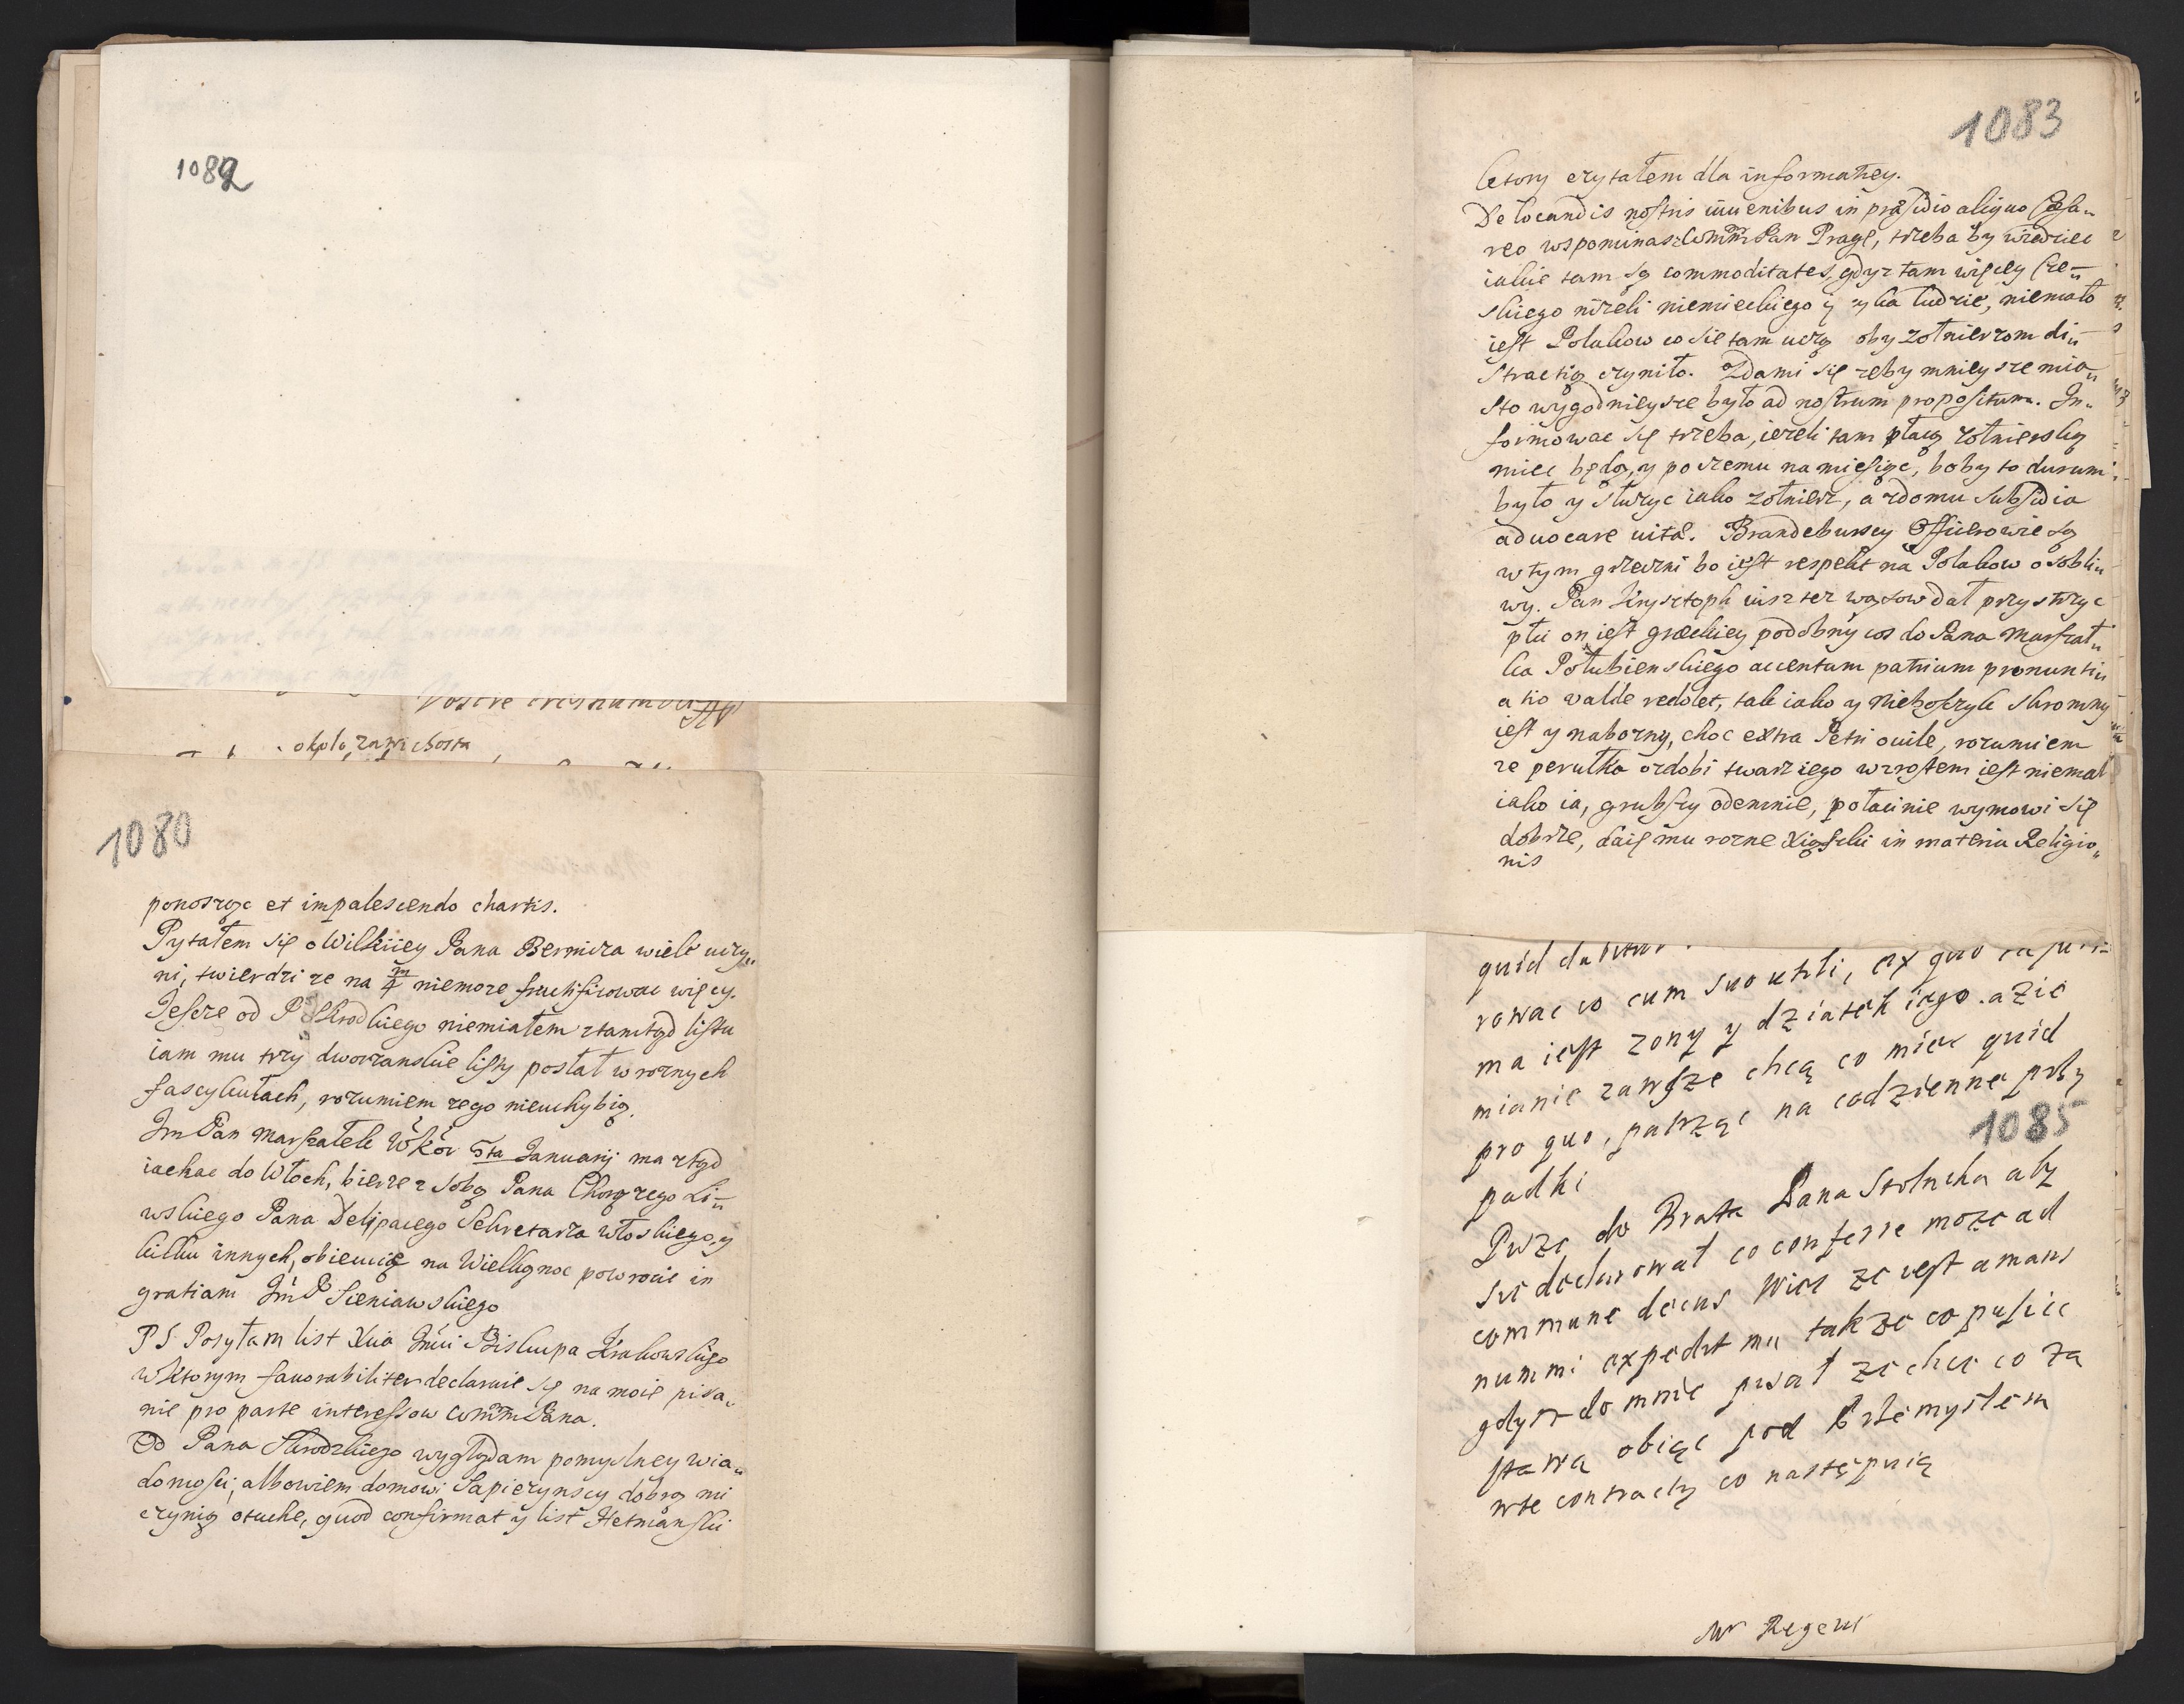 1082
około zawichosta
1080
ponosząc et impalescendo chartis.
Pytałem się o Wilkiiey Pana Bernicza wiele uczy„
ni, twierdzi ze na niemoze fructificowac więcy.
Jescze od P Skrodkiego niemiałem ztamtąd listu
iam mu trzy dworzanskie listy posłał w roznych
fascykułach, rozumiem zego nieuchybią.
Jm Pan Marszałek WKor 5ta Januarij ma ztąd
iachac do Włoch, bierze z sobą Pana Chorązego Li„
wskiego Pana Delipacego Sekretarza włoskiego, y
kilku innych, obiecuią na Wielkąnoc powrocic in
gratiam Jm P Sieniawskiego
PS Posyłam list Xcia Jmci Biskupa Krakowskiego
w ktorym fauorabiliter declaruie się na moie pisa„
nie pro parte interessow Pana.
Od Pana Skrodzkiego wyglądam pomyslney wia„
domosci, albowiem domowi Sapiezynscy dobrą mi
czynią otuche, quod confirmat y list Hetmanski
1083
ktory czytałem dla informatiey.
De locandis nostris iuuenibus in præsidio aliquo Cæsa„
reo wspominasz Pan Pragę, trzeba by wiedziec
iakie tam są commoditates, gdyz tam więcey Cze„
skiego nizeli niemieckiego ięzyka ludzie, niemało
iest Polakow co sie tam uczą oby zołnierzom di„
stractią czyniło. Zdami się zeby mnieysze mia„
sto wygodnieysze było ad nostrum propositum. In„
formowac się trzeba, iezeli tam płacą zołnierską
miec będą, y po czemu na miesiąc, boby to durum
było y słuzyc iako zołnierz, a zdomu subsidia
aduocare uitæ. Brandeburscy Officerowie są
w tym grzeczni bo iest respekt na Polakow osobli„
wy. Pan Krysztoph iusz tez wąsow dał przystrzyc
płci on iest grzeckiey podobny cos do Pana Marszał„
ka Połubienskiego accentum patrium pronuntia„
tio valde redolet, tak iako y Nieboszczyk skromny
iest y nabozny, choc extra Petri ouile, rozumiem
ze peruika ozdobi twarz iego wzrostem iest niemal
iako ia, grubszy odemnie, połacinie wymowi się
dobrze, daię mu rozne Xiąszki in materia Religio„
nis
rowac co cum suo utili, ex quo
ma iest zony y dziatek iego. a Zie
mianie zawsze chcą co miec quid
pro quo, patrząc na codzienne przy
padki
1085
Piszę do Brata Pana Stolnika aby
sie declarował co conferre moze ad
commune decus Wiesz ze iest amans
nummi expedit mu takze co puscic
gdysz do mnie pisał ze chce co za
stawą obiąc pod Przemyslem
wte contracty co nastę puią
Mr Regent